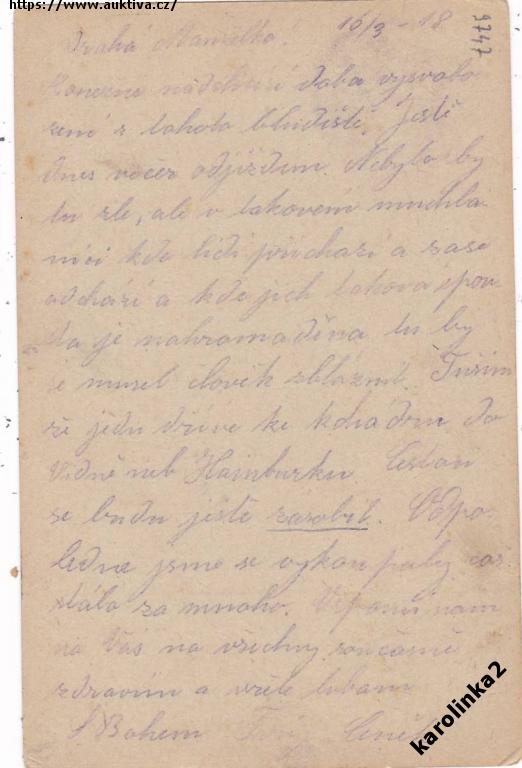 https://www.auktiva.cz/
9747
Drahá Manželko! 16/3 - 18
Konečně nadchází doba vysvobo
zení z tohoto bludiště. Ještě
dnes večer odjíždím. Nebylo by
tu zle, ale v takovém
kde lidi přichází a zase
odchází a kde jich taková spou
sta je nahromaděna tu by
se musel člověk zbláznit. Tuším
že jedu dříve ke kádru do
Vídně neb Hainburku. Cestou
se budu ještě zásobit. Odpo
ledne jsme se vykoupaly což
stálo za mnoho. Vzpomínám
na Vás na všechny současně
zdravím a vřele líbám
S Bohem Tvůj Čeněk
karolinka2